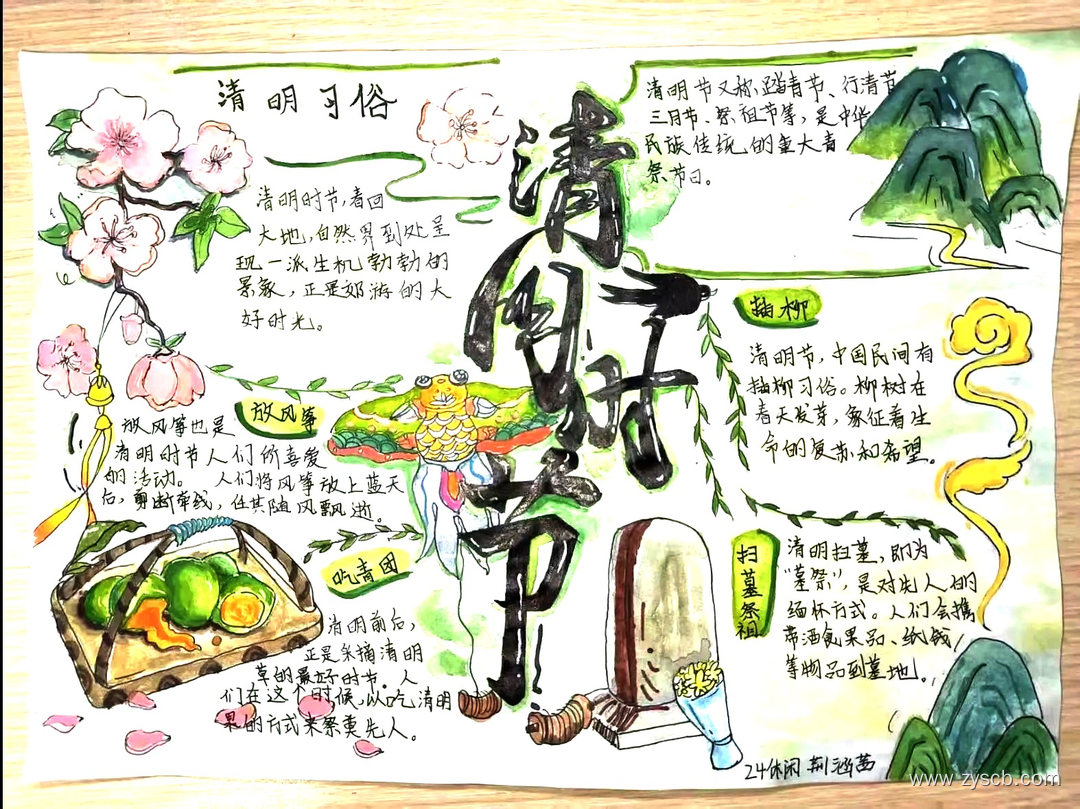 清明习俗
清明时节,春回
大地,自然界到处呈
现一派生机勃勃的
景象,正是郊游的大
好时光。
清明时节
清明节又称踏青节、行清节
三月节、祭祖节等,是中华
民族传统的重大春
祭节日。
插柳
清明节,中国民间有
插柳习俗。柳树在
春天发芽,象征着生
命的复苏和希望。
放风筝
放风筝也是
清明时节人们所喜爱
的活动。人们将风筝放上蓝天
后,剪断牵线,任其随风飘逝。
吃青团
清明前后,
正是采摘清明
草的最好时节。人
们在这个时候,以吃清明
果的方式来祭奠先人。
扫墓祭祖
清明扫墓,即为
“墓祭”,是对先人的
缅怀方式。人们会携
带酒食果品、纸钱
等物品到墓地。
24休闲 荆涵茜
www.zyscb.com